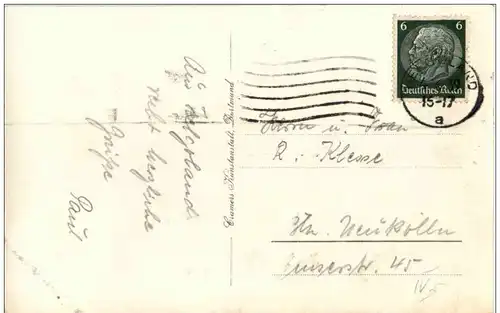 Aus Helgoland
sendet herzliche
Grüße
Paul
Cramers Kunstanstalt, Dortmund
6 6
Deutsches Reich
15-17
a
Herrn u. Frau
R. Klesse
Bln. Neukölln
45
IV